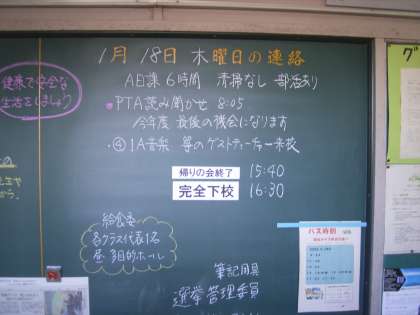 1月18日 木曜日の連絡
A日課 6時間 清掃なし 部活あり
健康で安全な
生活をしましょう
●PTA読み聞かせ 8:05
今年度 最後の機会になります
・④1A音楽 箏のゲストティーチャー来校
帰りの会終了 15:40
完全下校 16:30
給食委
各クラス代表1名
昼 多目的ホール
筆記用具
選挙管理委員
バス時刻